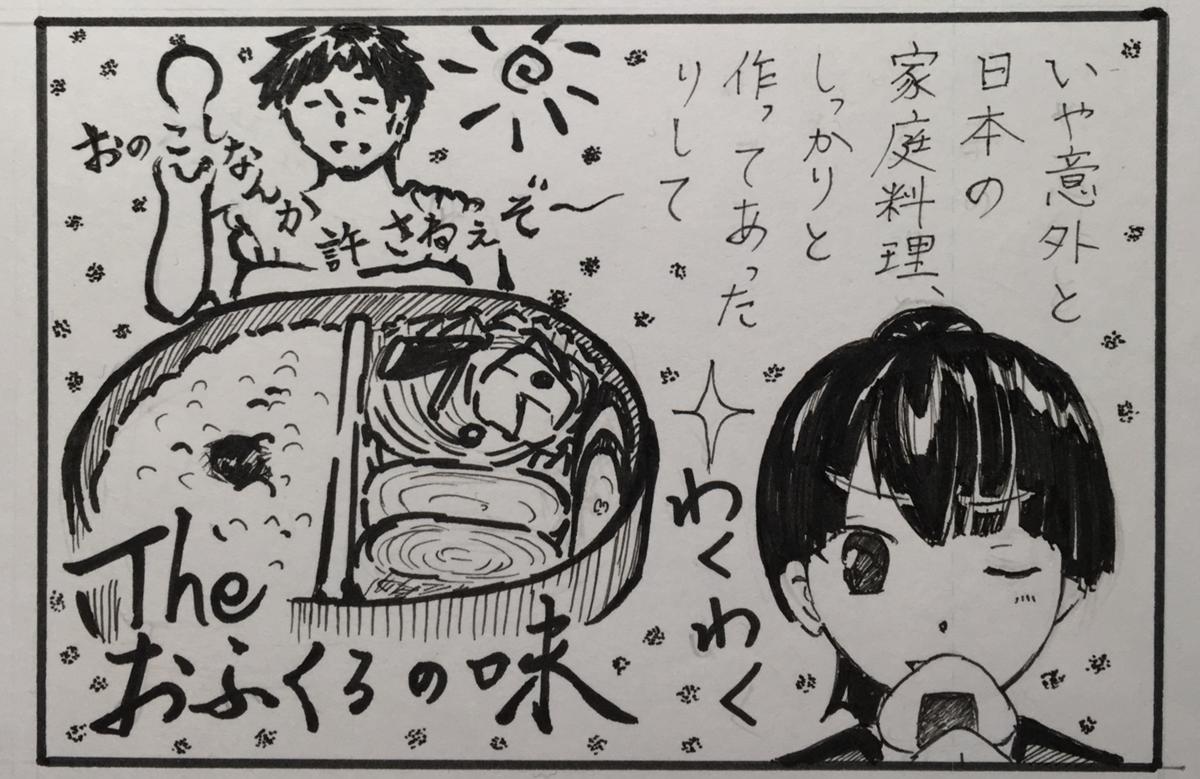 いや意外と
日本の
家庭料理、
しっかりと
作ってあった
りして
わくわく
おのこしなんか
許さねぇぞ～
The
おふくろの味